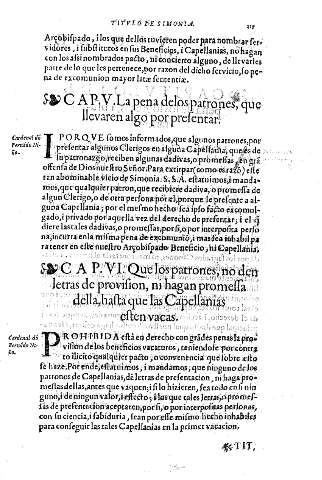 TITVLO DE SIMONIA. 219
Arçobispado, i los que dellos tuvieren poder para nombrar ser-
vidores, i substitutos en sus Beneficios, i Capellanias, no hagan
con los assi nombrados pacto, ni concierto alguno, de llevarles
parte de lo que les pertenece, por razon del dicho servicio, so pe-
na de excomunion mayor latæ sententiæ.
CAP. V. La pena de los patrones, que
llevaren algo por presentar.
Cardenal dõ
Fernãdo Ni-
ño.
I PORQVE somos informados, que algunos patrones, por
presentar algunos Clerigos en alguna Capellania, que es de
su patronazgo, reciben algunas dadivas, o promessas, en grã
offensa de Dios nuestro Señor. Para extirpar (como es razõ) este
tan abominable vicio de Simonia. S. S. A. estatuimos, i manda-
mos, que qualquier patron, que recibiere dadiva, o promessa de
algun Clerigo, o de otra persona por el, porque le presente a al-
guna Capellania; por el mesmo hecho sea ipso facto excomul-
gado, i privado por aquella vez del derecho de presentar; i el q̃
diere las tales dadivas, o promessas, por si, o por interposita perso-
na, incurra en la misma pena de excomuniõ, i mas sea inhabil pa
ra tener en este nuestro Arçobispado Beneficio, ni Capellania.
CAP. VI. Que los patrones, no den
letras de provision, ni hagan promessa
della, hasta que las Capellanias
esten vacas.
Cardenal dõ
Fernãdo Ni-
ño.
PROHIBIDA està en derecho con grãdes penas la pro-
vision de los beneficios vacaturos, taniendole por contra
to ilicito qualquier pacto, o convenencia que sobre esto
se haze. Por ende, estatuimos, i mandamos; que ninguno de los
patronos de Capellanias, dè letras de presentacion, ni haga pro-
messas dellas, antes que vaquen; i si lo hizieren, sea todo en si nin
guno, i de ningun valor, i effecto; i los que tales letras, o promes-
sas de presentacion aceptaren, por si, o por interpositas personas,
con su ciencia, i sabiduria, sean por esse mismo hecho inhabiles
para conseguir las tales Capellanias en la primer vacacion.
TIT,